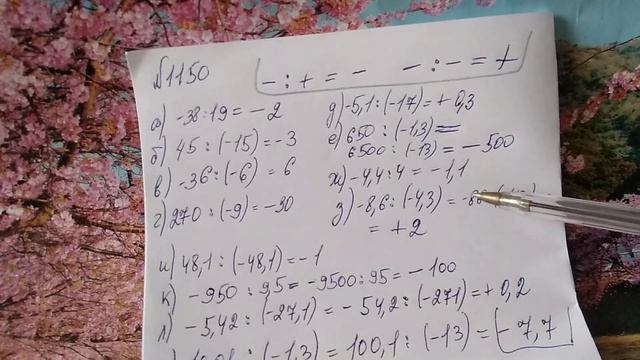 №1150
- : + = -    - : - = +
а) -38:19 = -2
б) 45 : (-15) = -3
в) -36 : (-6) = 6
г) 270 : (-9) = -30
д) -5,1 : (-17) = + 0,3
е) 650 : (-1,3) =
6500 : (-13) = -500
ж) -4,4 : 4 = -1,1
з) -8,6 : (-4,3) =
= +2
и) 48,1 : (-48,1) = -1
к) -950 : 9,5 = -9500 : 95 = -100
л) -5,42 : (-27,1) = -54,2 : (-271) = +0,2
(-1,3) = 100,1 : (-13) = -7,7